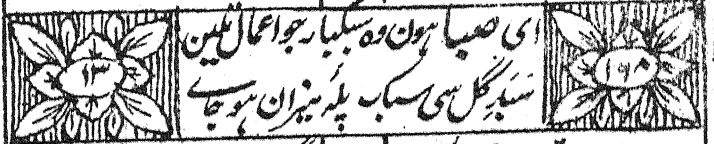 ای صبا ہون وہ سبکبار جو اعمال تلین
سبد گل سی سبک پلۂ میزان ہو جاے
۱۳